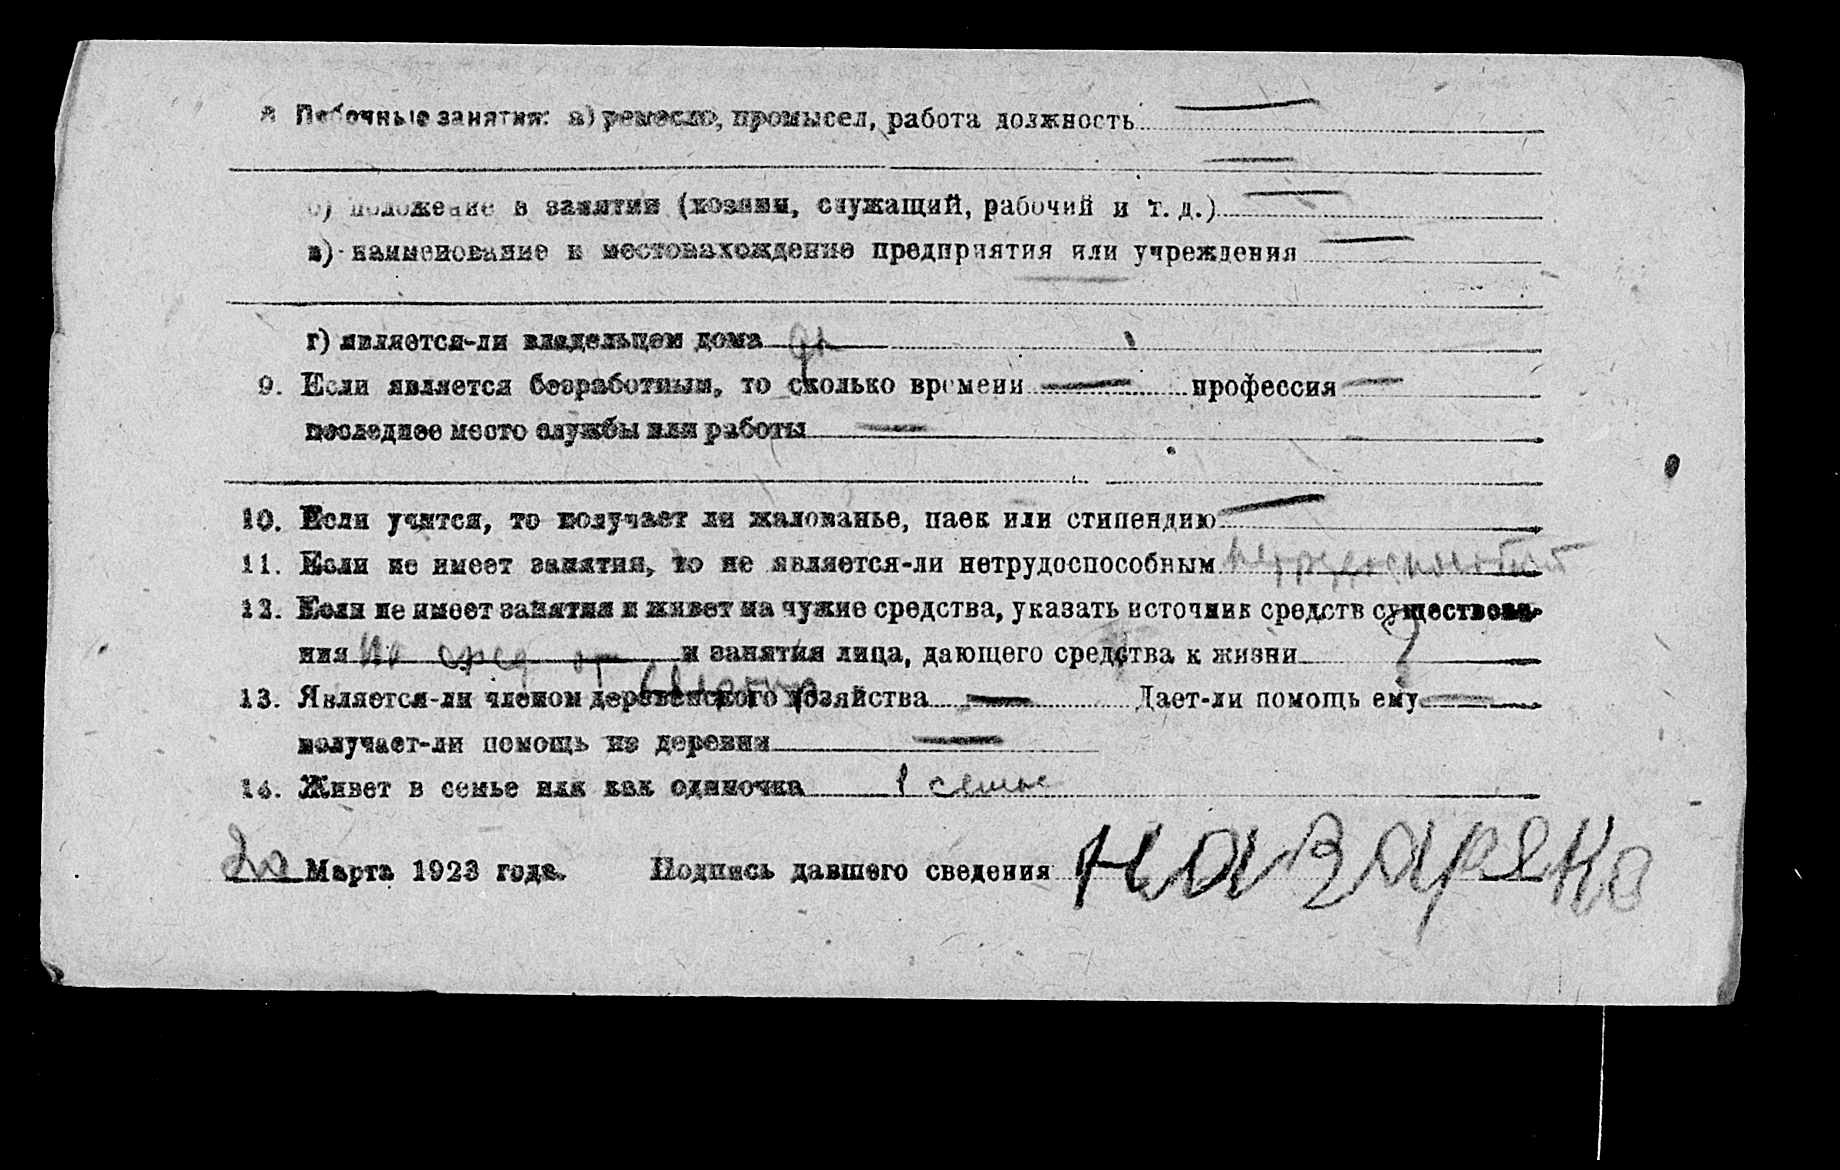 8 Побочные занятия: а) ремесло, промысел, работа должность
б) положение в занятии (хозяин, служащий, рабочий и т. д.)
в) наименование и местонахождение предприятия или учреждения
г) является-ли владельцем дома да
9. Если является безработным, то сколько времени профессия
последнее место службы или работы
10. Если учится, то получает ли жалованье, паек или стипендию
11. Если не имеет занятия, то не является-ли нетрудоспособным нетрудоспособный
12. Если не имеет занятия и живет на чужие средства, указать источник средств существова-
ния и занятия лица, дающего средства к жизни
13. Является-ли членом деревенского хозяйства Дает-ли помощь ему
получает-ли помощь из деревни
14. Живет в семье или как одиночка в семье
20 Марта 1923 года. Подпись давшего сведения